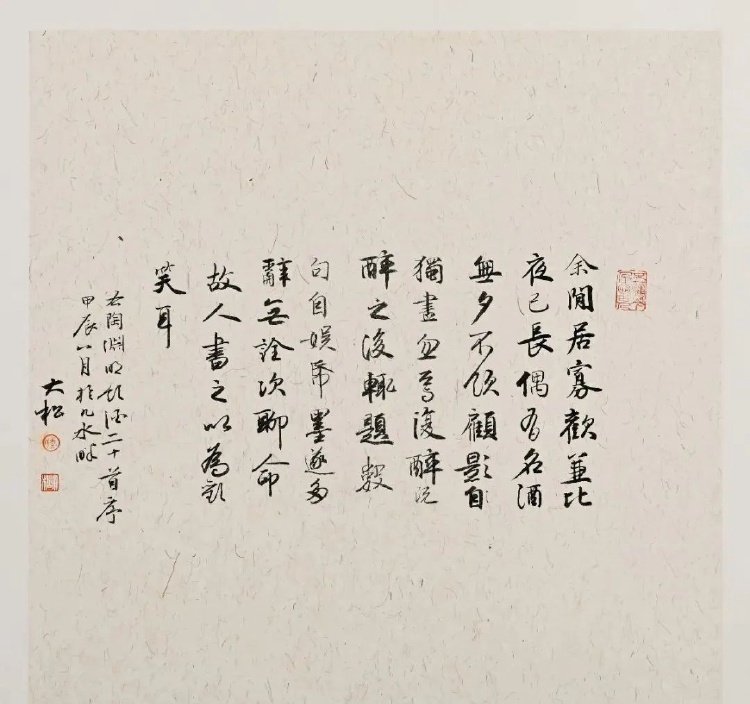 余閒居寡歡兼比
夜已長偶有名酒
無夕不飲顧影自
獨盡忽焉復醉既
醉之後輒題數
句自娛紙墨遂多
辭無詮次聊命
故人書之以為歡
笑耳
右陶淵明飲酒二十首序
甲辰八月於九水畔
大松